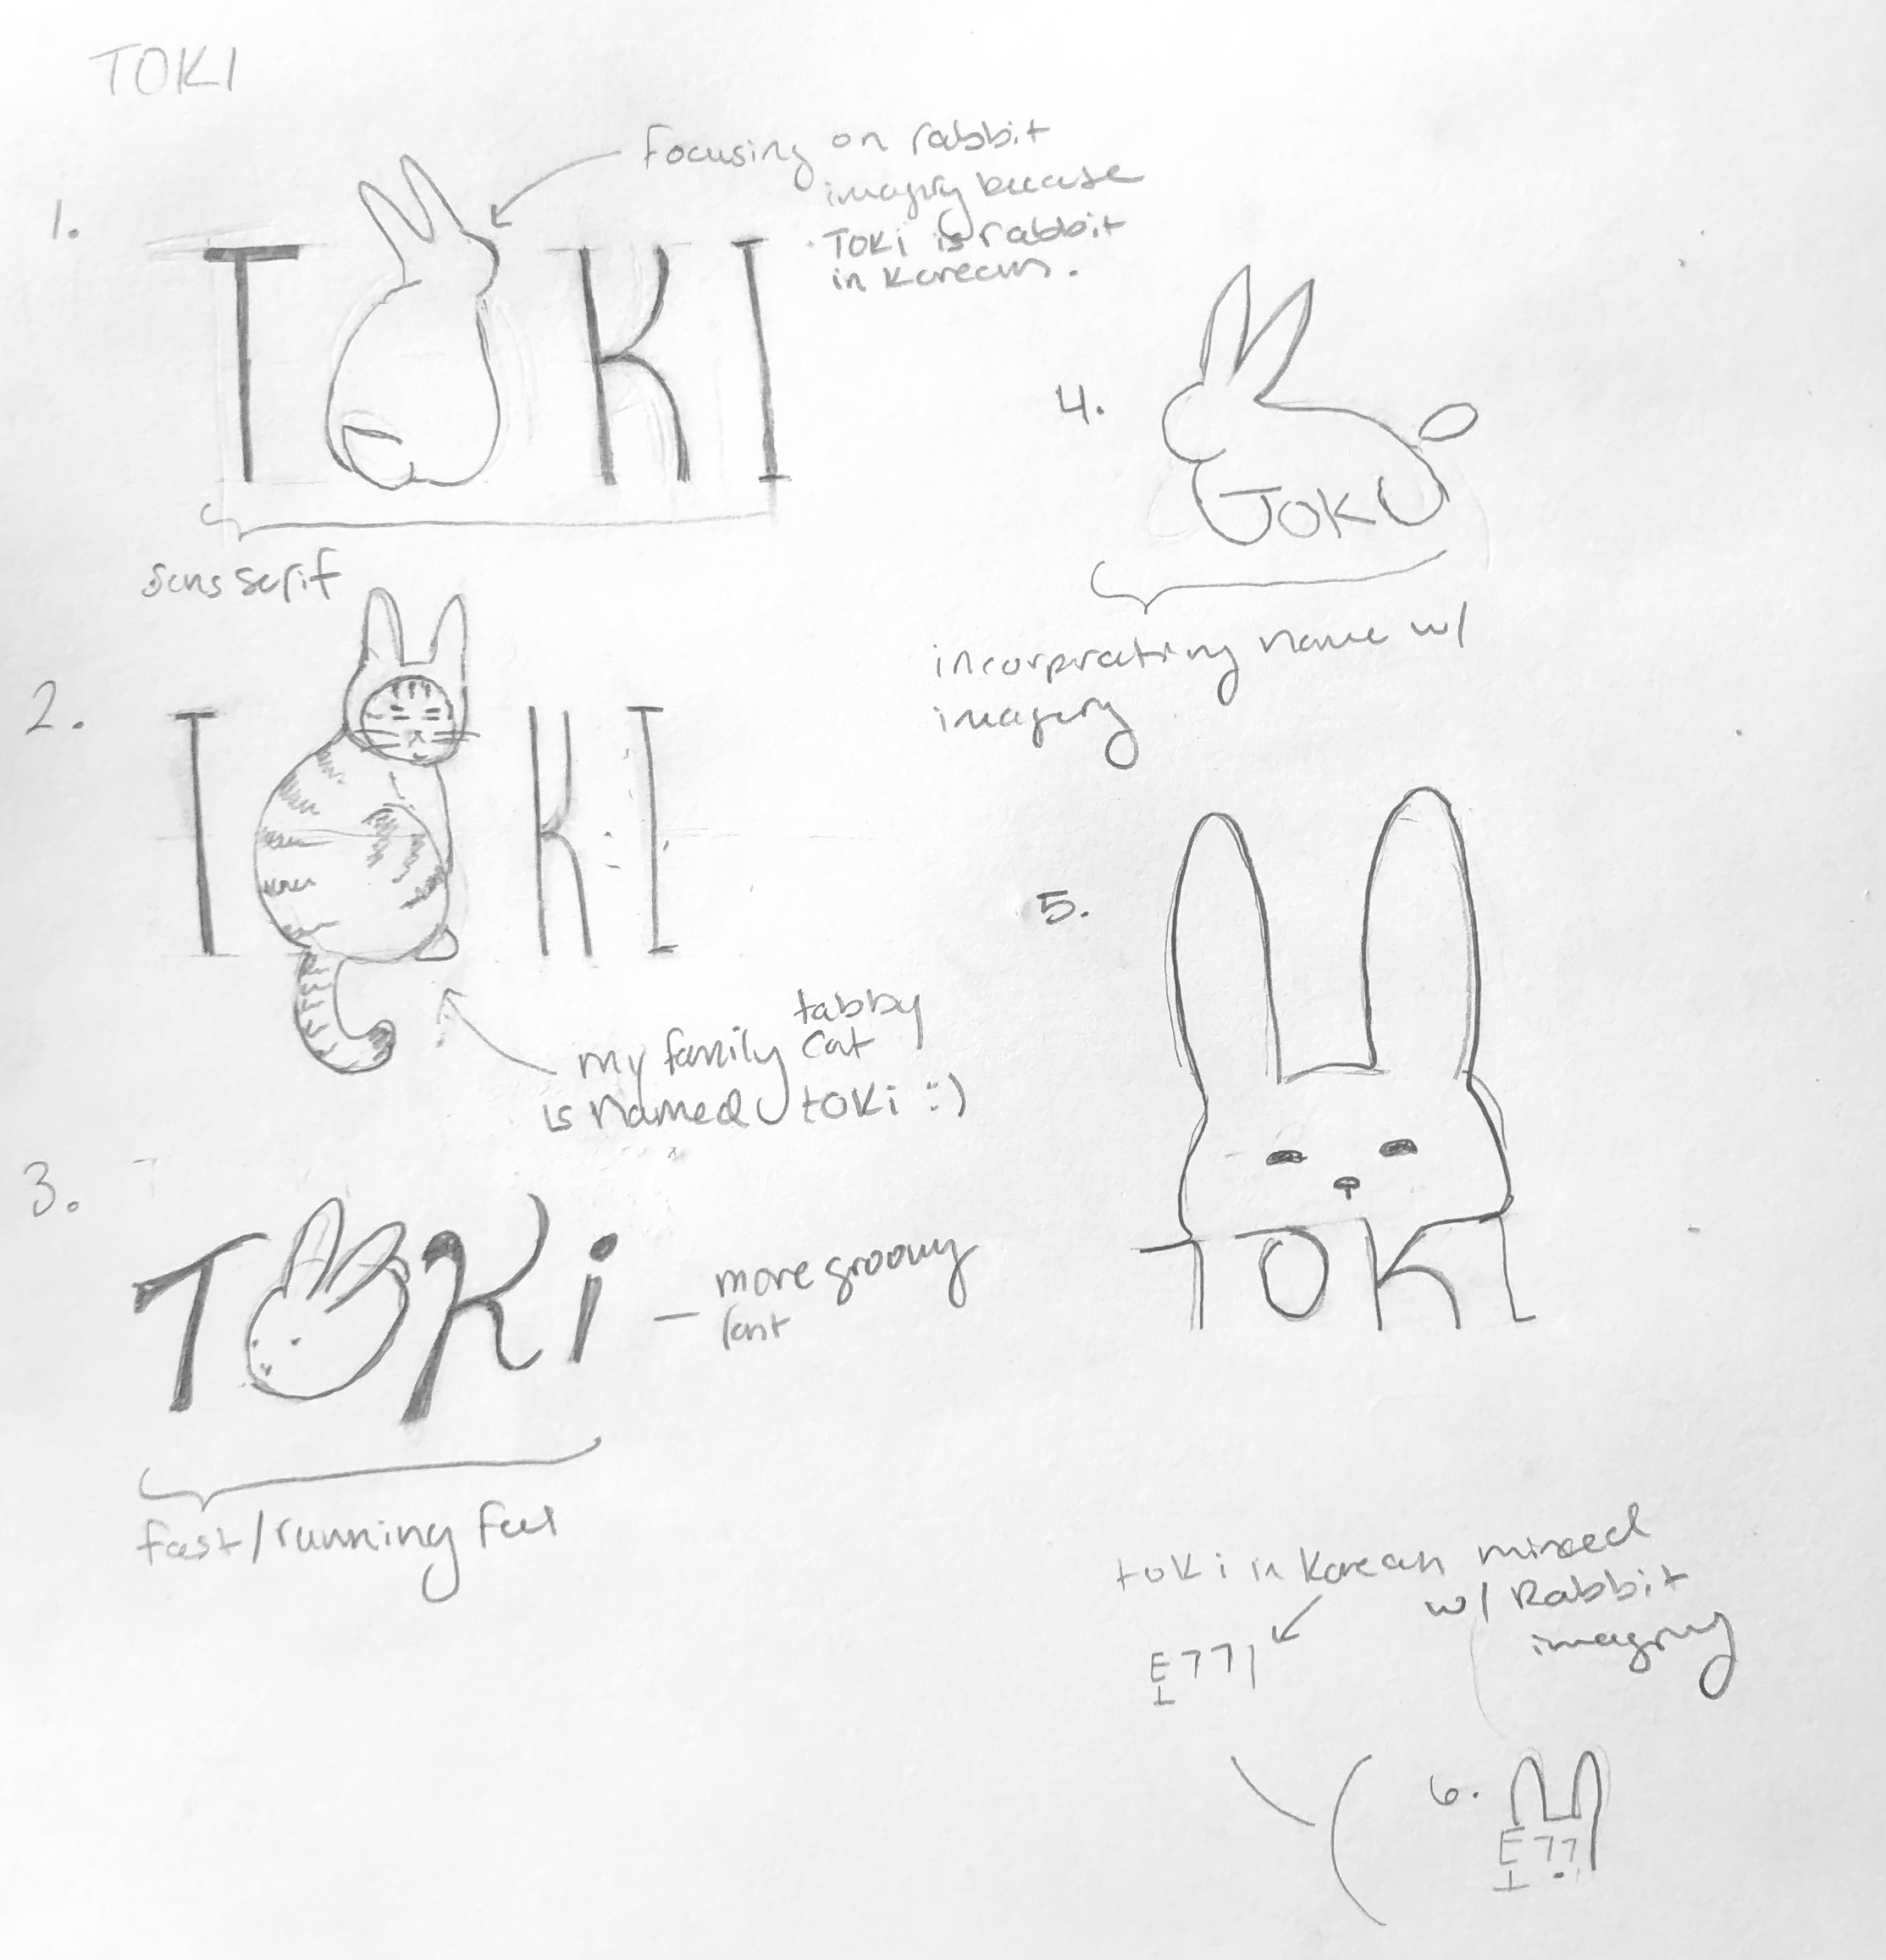 TOKI
1.
focusing on rabbit
imagery because
TOKI is rabbit
in Korean.
TOKI
sans serif
2.
TOKI
my family tabby
cat
is named toki :)
3.
TOKi
more groovy
font
fast/running feel
4.
TOKI
incorprating name w/
imagery
5.
TOKI
toki in Korean mixed
w/ Rabbit
imagery
토끼
6.
토끼